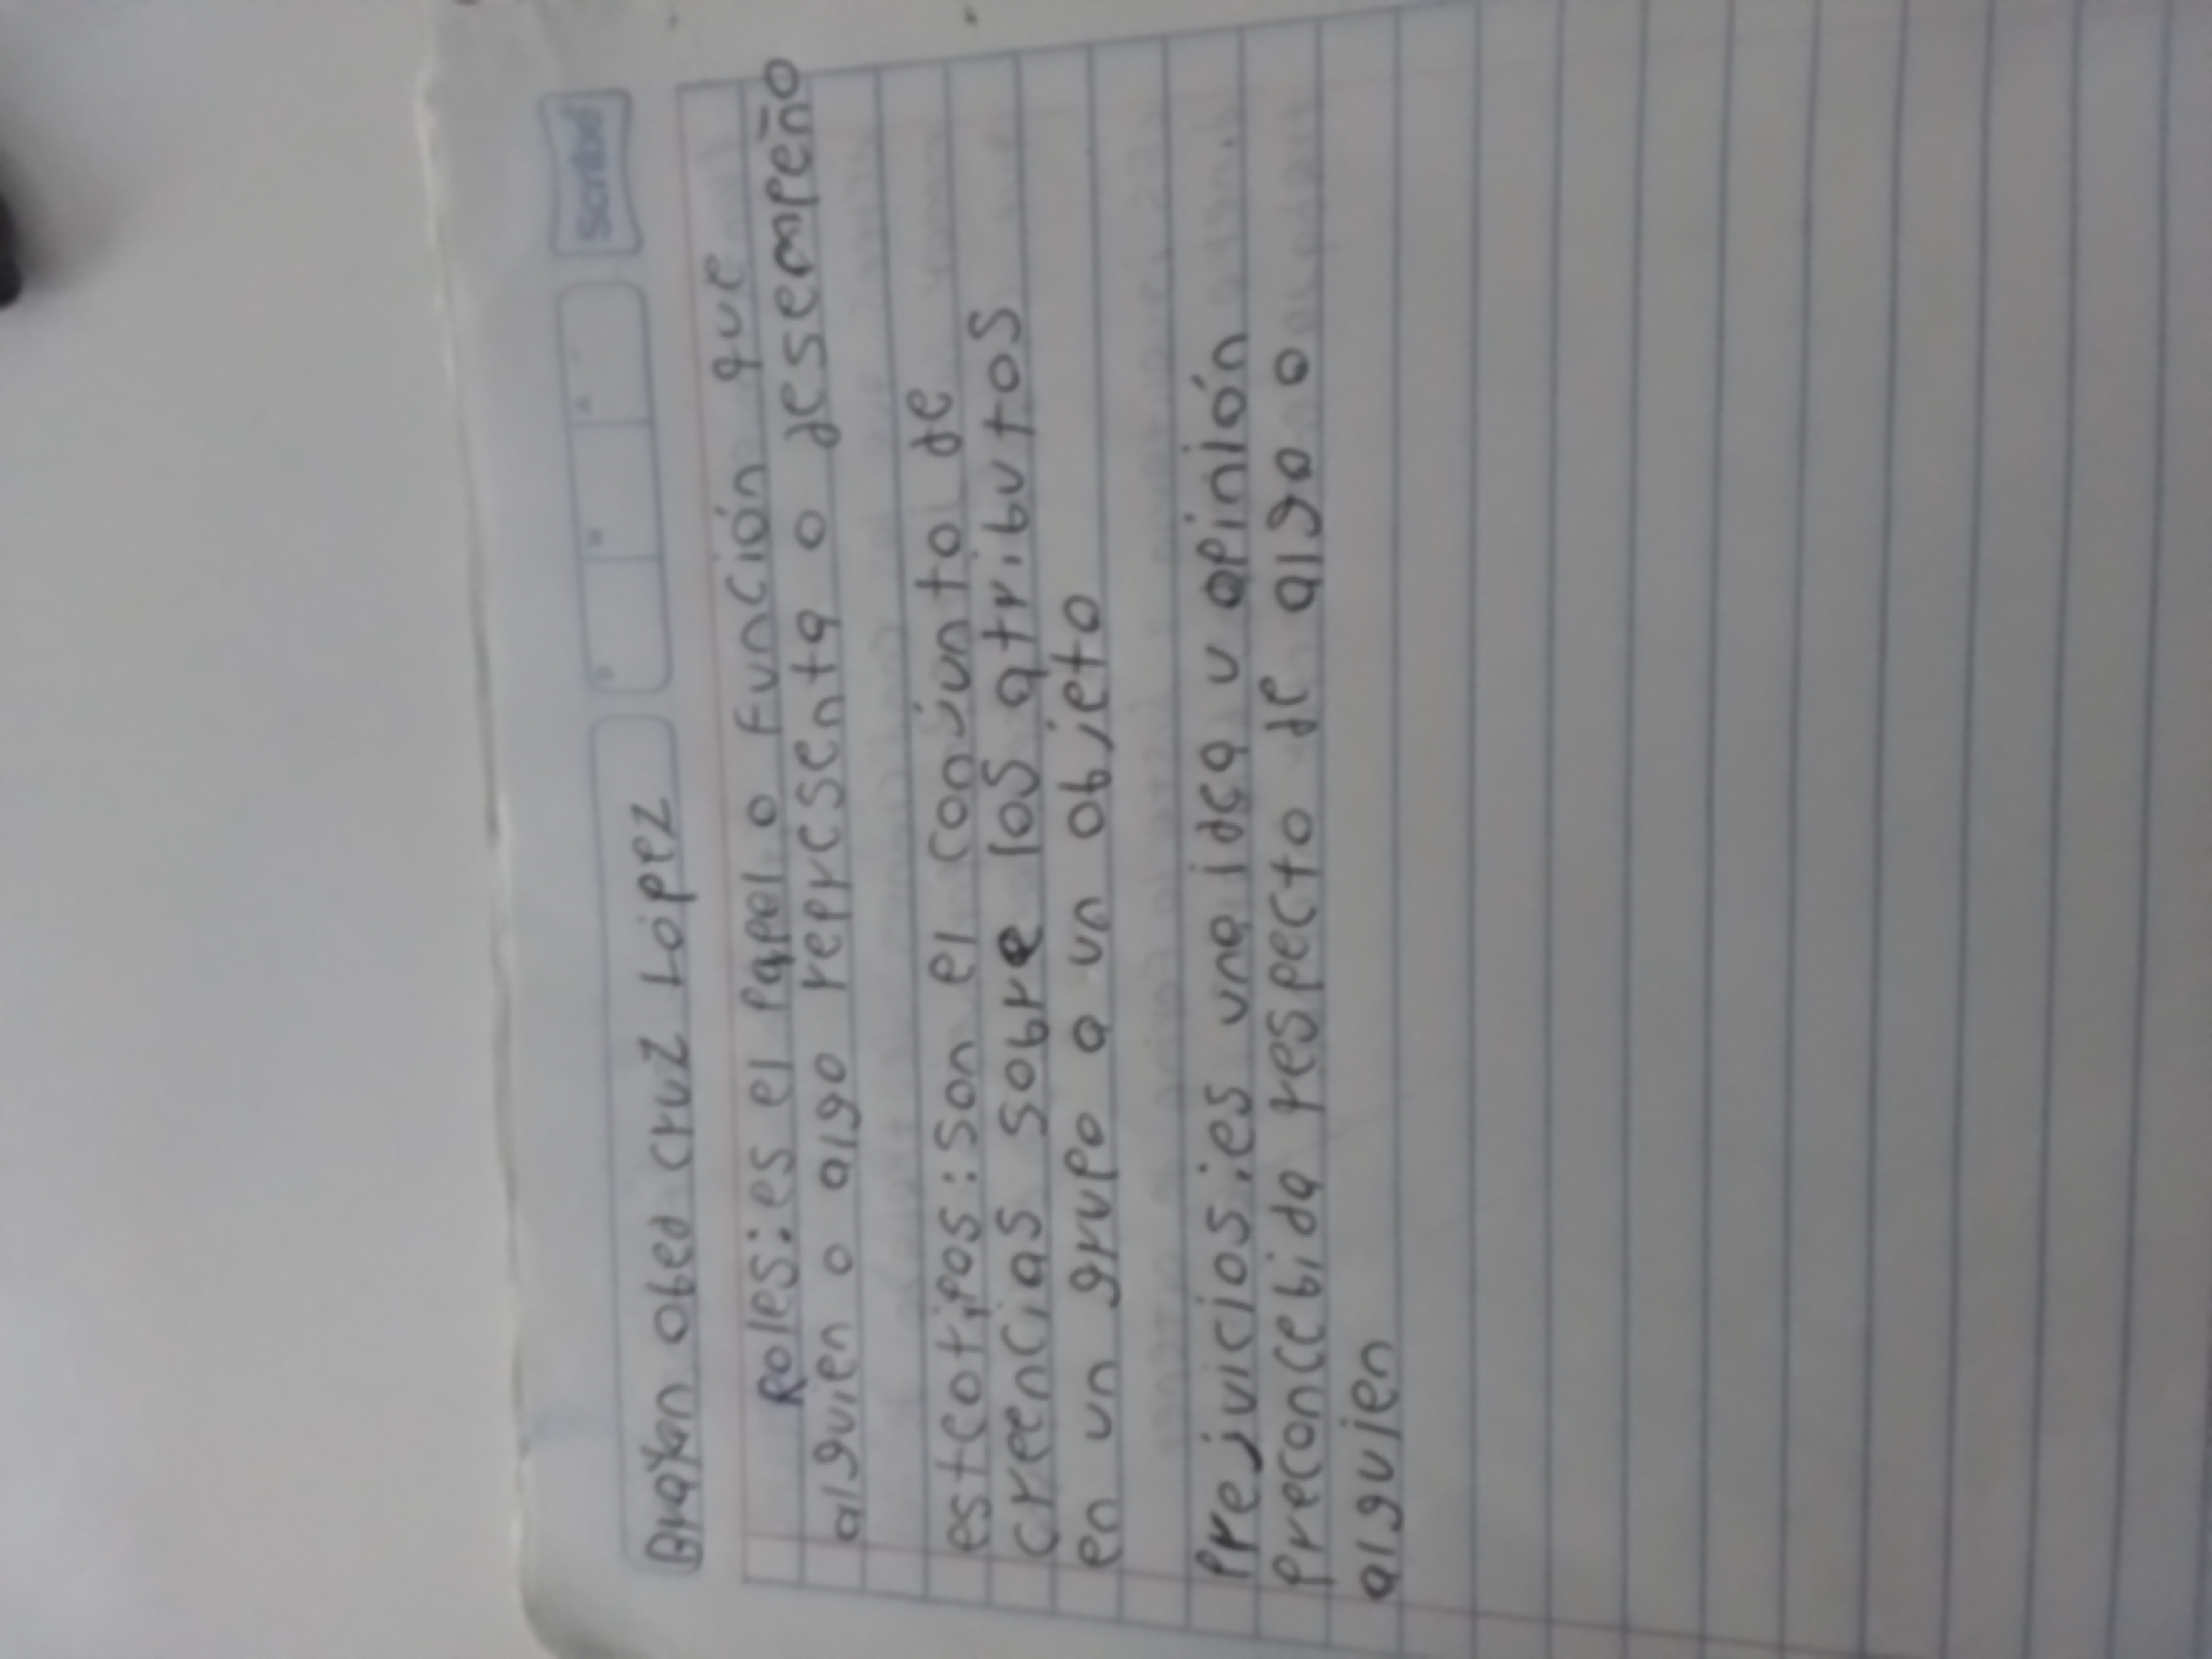 Scribe
Brayan obed cruz López
Roles: es el papel o función que
alguien o algo representa o desempeño
estcotipos: son el conjunto de
creencias sobre los atributos
en un grupo o un objeto
Prejuicios: es una idea u opinión
preconcebida respecto de algo o
alguien